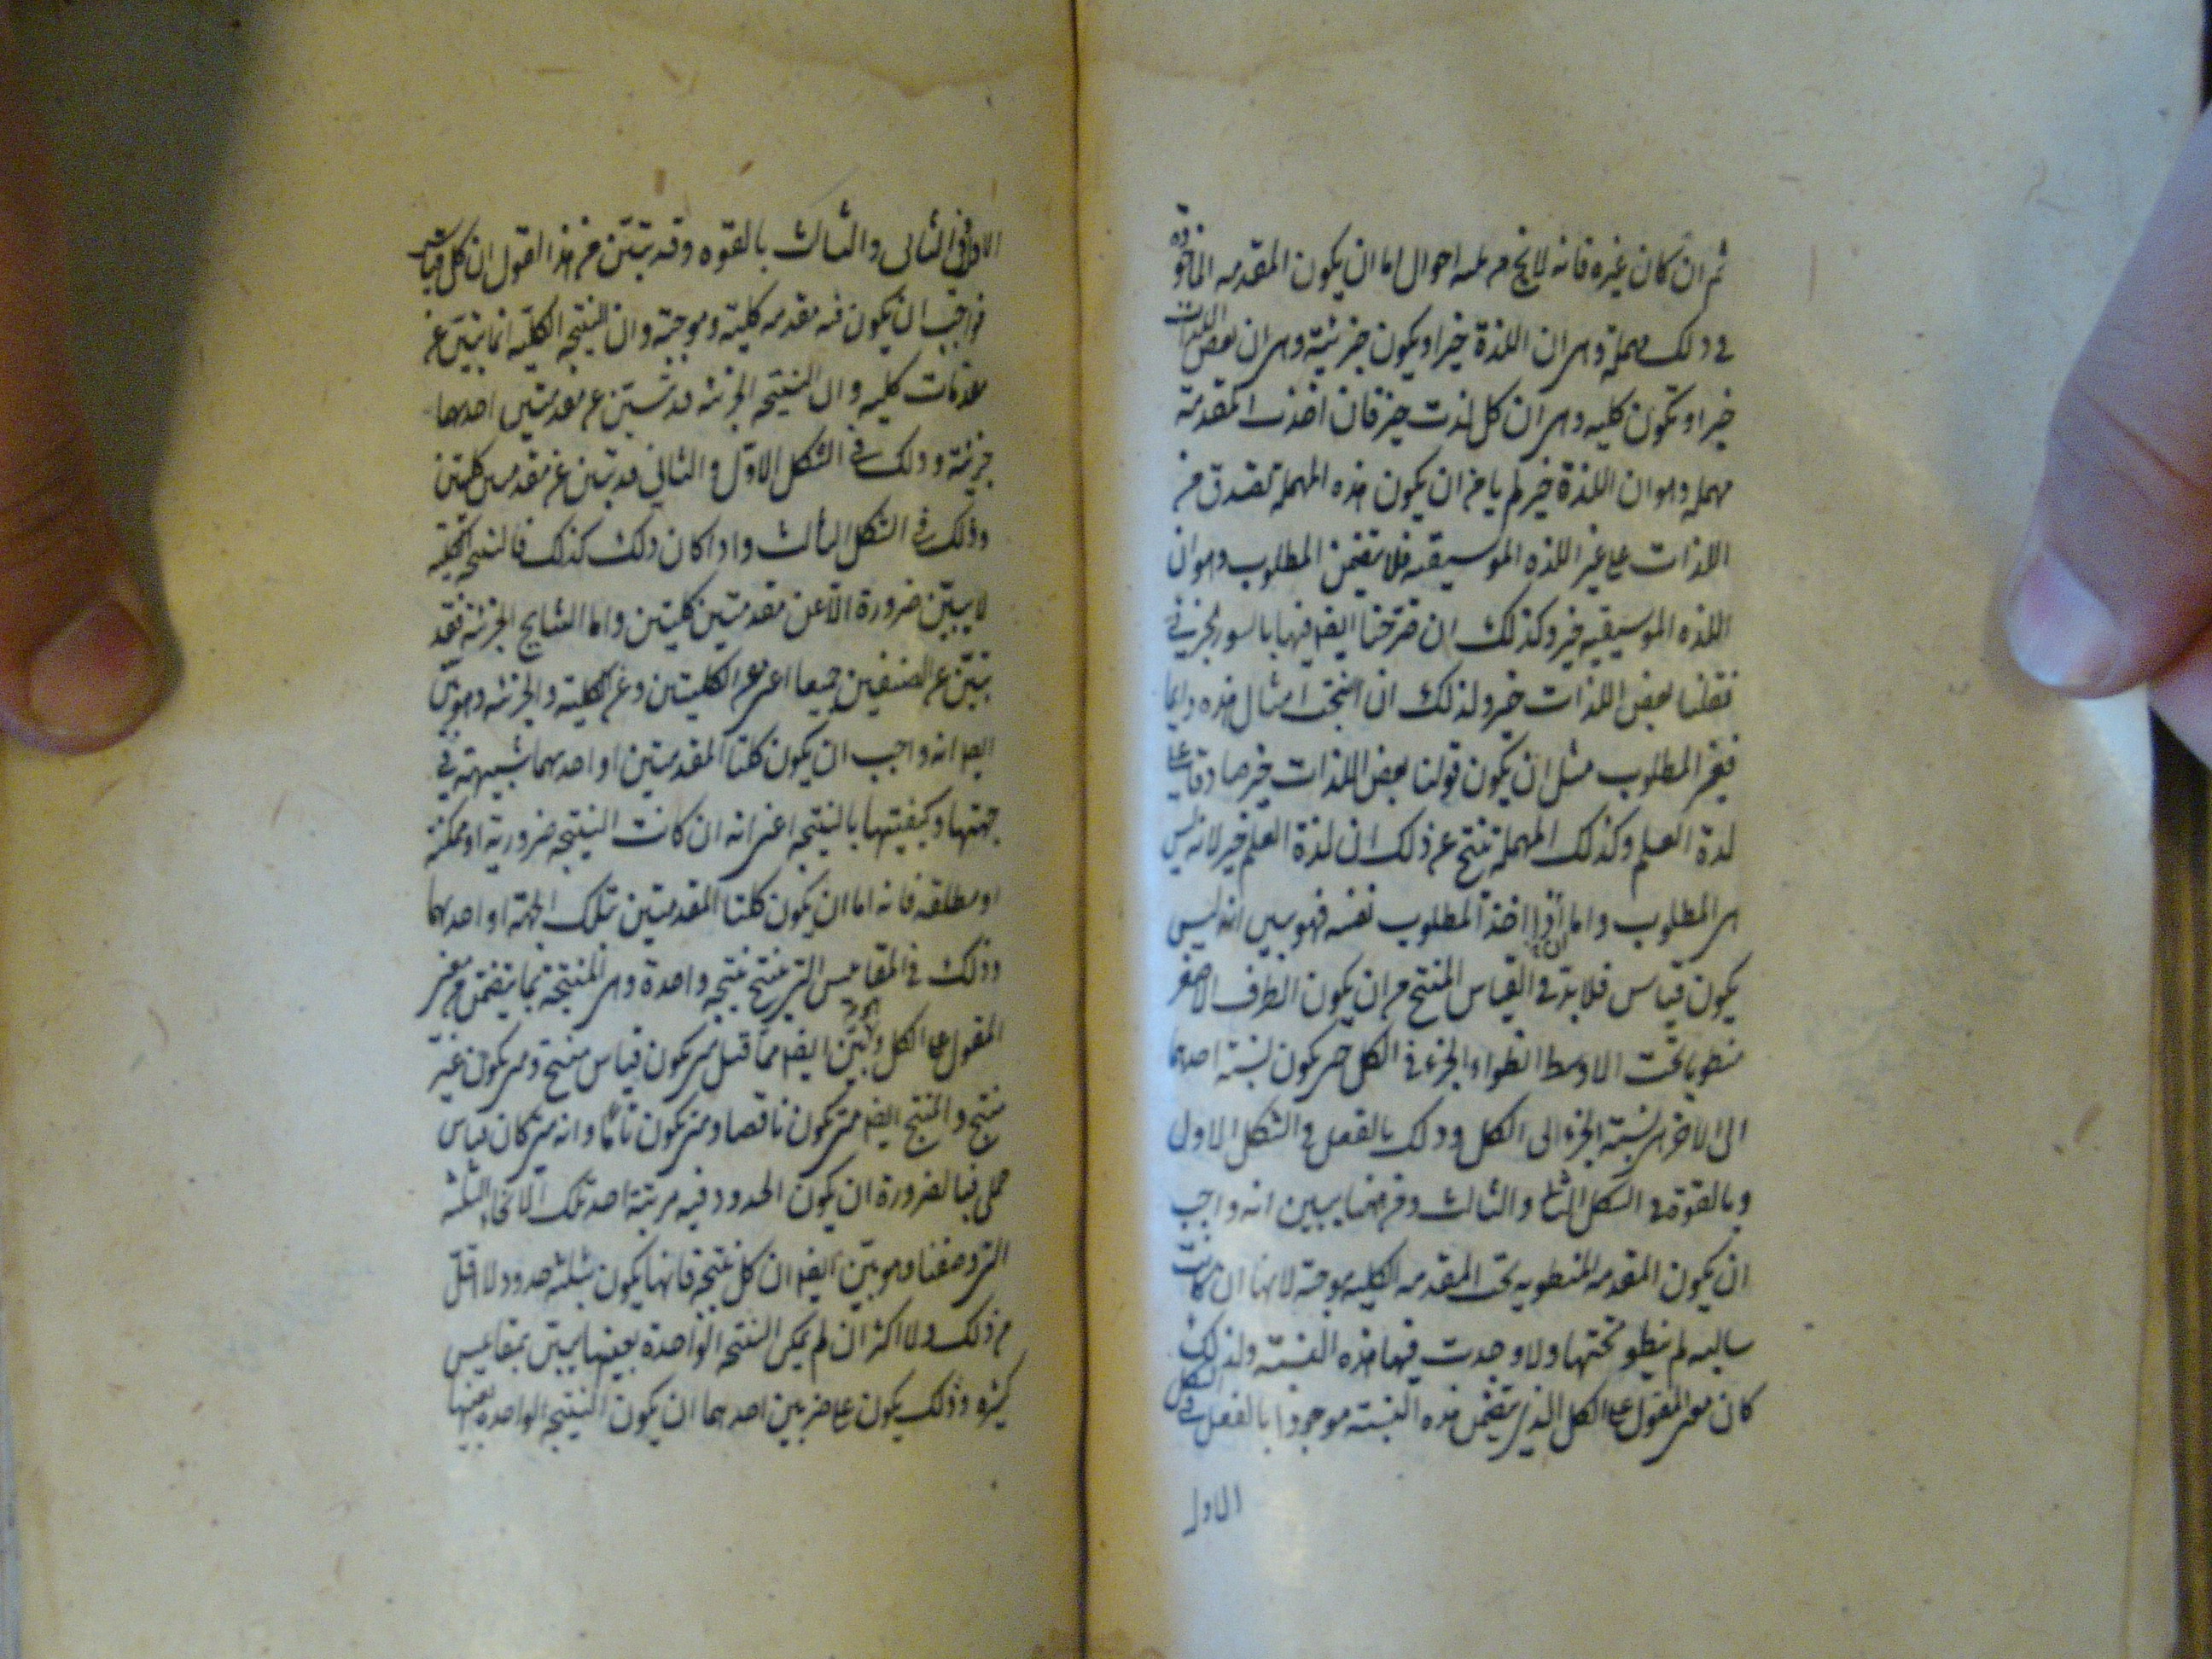 ثم ان كان غيره فانه لا يخ من ثلثه احوال اما ان يكون المقدمه الماخوذه
في ذلك مهملة وهى ان اللذة خير او يكون جزئية وهى ان بعض اللذات
خير او تكون كليه وهى ان كل لذت خير فان اخذت المقدمة
مهمله وهو ان اللذة خير لم يامن ان يكون هذه المهملة تصدق من
اللذات على غير اللذه الموسيقيه فلا يتضمن المطلوب وهو ان
اللذه الموسيقيه خير وكذلك ان صرحنا ايضا فيها بالسور الجزئى
فقلنا بعض اللذات خير ولذلك ان انتجت امثال هذه دايما
فغير المطلوب مثل ان يكون قولنا بعض اللذات خير صادقا على
لذة العلم وكذلك المهملة تنتج عن ذلك ان لذة العلم خير لانه ليس
هى المطلوب واما اذا اخذ المطلوب نفسه فهو بين انه ليس
يكون قياس فلا بد فى القياس المنتج من ان يكون الطرف الاصغر
منطويا تحت الاوسط انطواء الجزء فى الكل حتى يكون نسبة احدهما
الى الاخر هى نسبة الجزء الى الكل وذلك بالفعل فى الشكل الاول
وبالقوة فى الشكل الثانى والثالث ومن ههنا يبين انه واجب
ان يكون المقدمه المنطويه تحت المقدمه الكليه موجبة لانها ان كانت
سالبه لم ينطو تحتها ولا وجدت فيها هذه النسبة ولذلك
كان معنى المقول على الكل الذى يتضمن هذه النسبة موجودا بالفعل فى الشكل
الاول
الاول وفى الثانى والثالث بالقوه وقد تبين من هذا القول ان كل قياس
فواجب ان يكون فيه مقدمه كلية وموجبة وان النتيجه الكليه انما تبين عن
مقدمات كليه وان النتيجه الجزئيه قد تبين عن مقدمتين احدهما
جزئية وذلك فى الشكل الاول والثانى وقد تبين عن مقدمتين كليتين
وذلك فى الشكل الثالث واذا كان ذلك كذلك فالنتيجة الكلية
لا يبين ضرورة الا عن مقدمتين كليتين واما النتايج الجزئية فقد
تبين عن الصنفين جميعا اعنى عن الكليتين وعن الكلية والجزئيه وهو بين
ايضا انه واجب ان يكون كلتا المقدمتين او احدهما شبيهة فى
جهتها وكيفيتها بالنتيجه اعنى انه ان كانت النتيجه ضرورية او ممكنة
او مطلقه فانه اما ان يكون كلتا المقدمتين بتلك الجهة او احدهما
وذلك فى المقاييس التى تنتج نتيجه واحدة وهى المنتجة بما يتضمن من معنى
المقول على الكل وتبين ايضا مما قيل متى يكون قياس منتج ومتى يكون غير
منتج والمنتج ايضا متى يكون ناقصا ومتى يكون تاما وانه متى كان قياس
حملى فبالضرورة ان يكون الحدود فيه مرتبة احد تلك الانحاء الثلثه
التى وصفنا وهو بين ايضا ان كل نتيجه فانها يكون بثلثه حدود لا اقل
من ذلك ولا اكثر ان لم يكن النتيجه الواحدة بعينها يبين بمقاييس
كثيره وذلك يكون على ضربين احدهما ان يكون النتيجه الواحدة بعينها